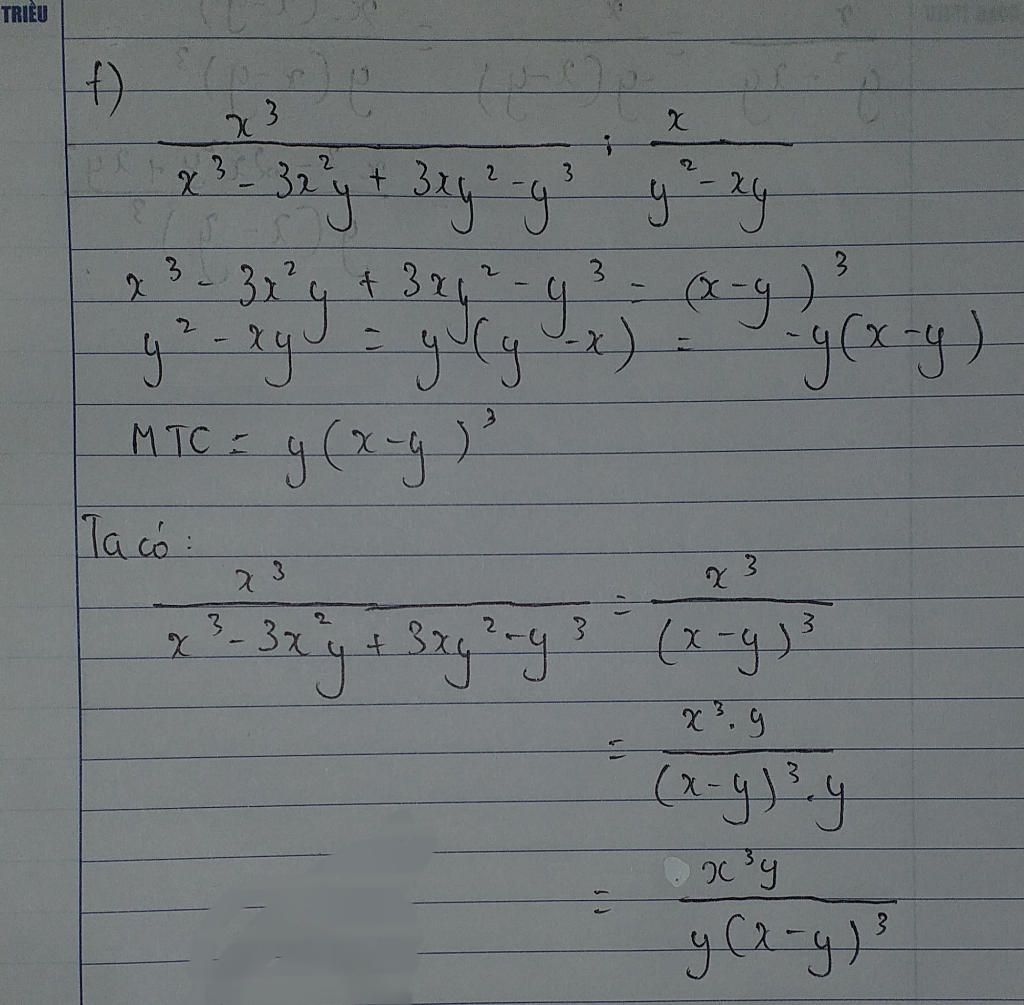 TRIỀU
f)
x³ / (x³ - 3x²y + 3xy² - y³) ; x / (y² - xy)
x³ - 3x²y + 3xy² - y³ = (x-y)³
y² - xy = y(y-x) = -y(x-y)
MTC = y(x-y)³
Ta có:
x³ / (x³ - 3x²y + 3xy² - y³) = x³ / (x-y)³
= x³.y / (x-y)³.y
= x³y / y(x-y)³